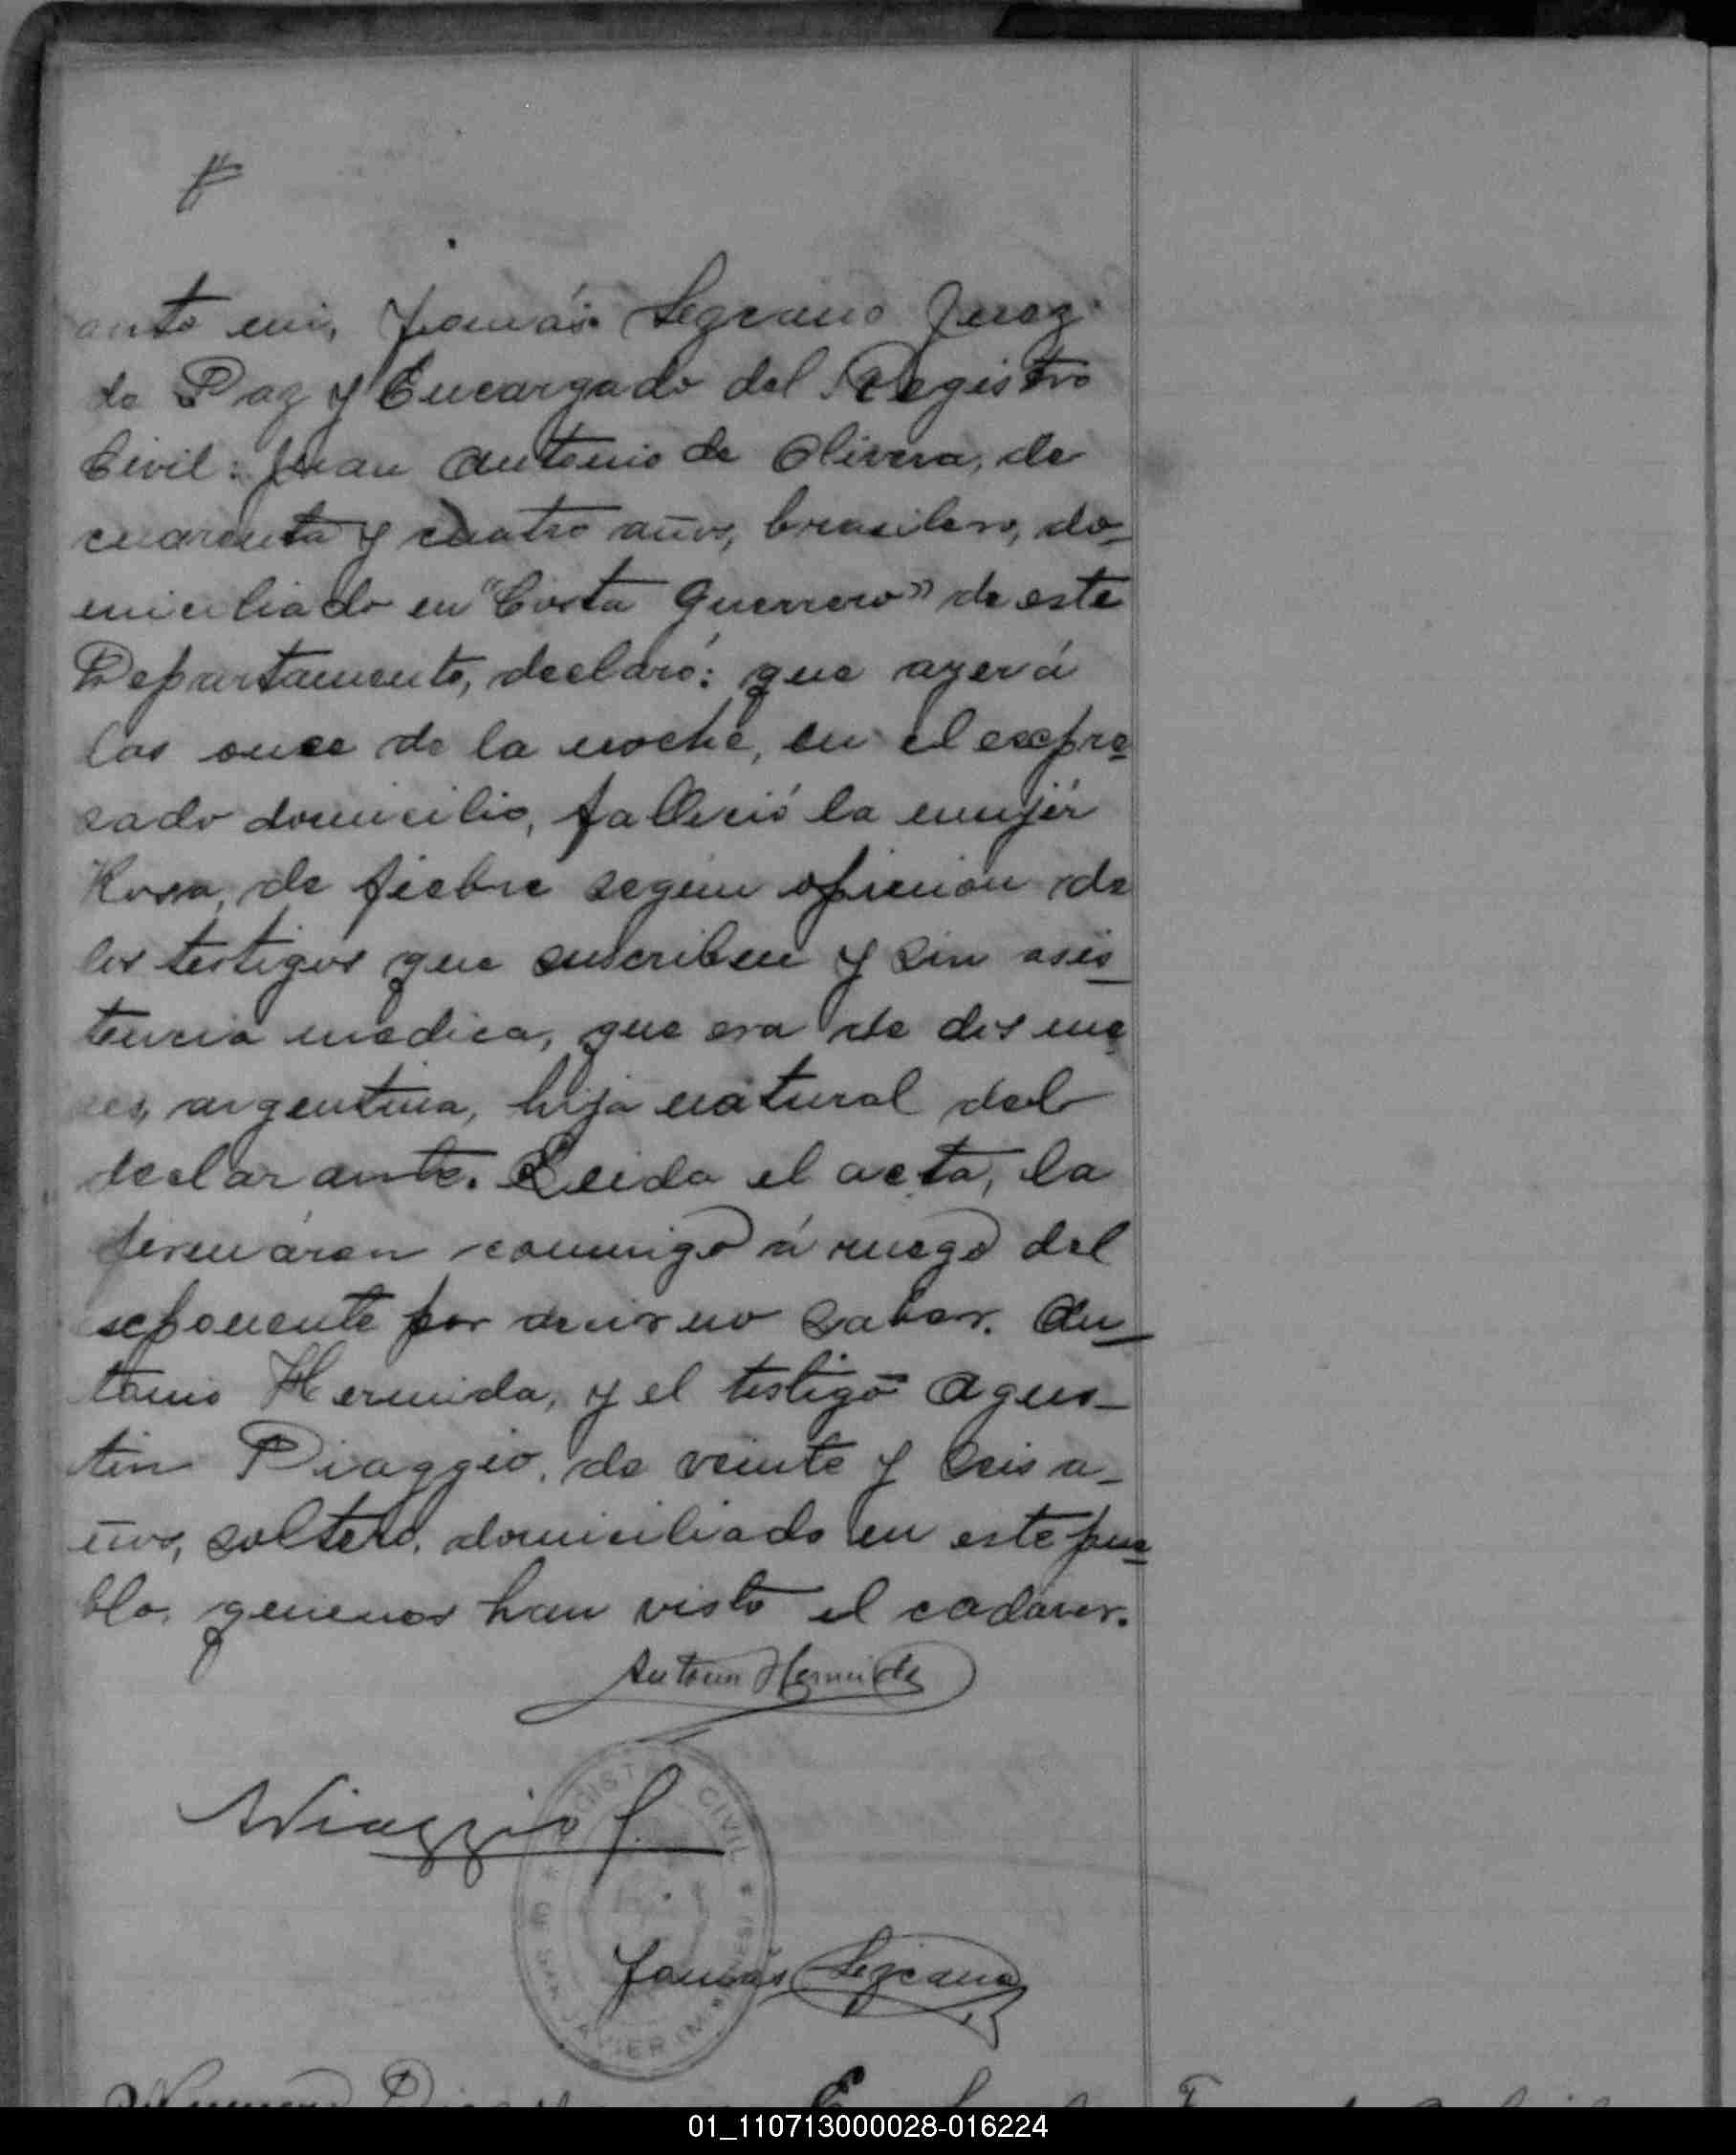 ante mi, Tomás Lezcano Juez
de Paz y Encargado del Registro
Civil: Juan Antonio de Olivera, de
cuarenta y cuatro años, brasilero, do-
miciliado en "Costa Guerrero" de este
Departamento, declaró: que ayer á
las once de la noche, en el expre-
sado domicilio, falleció la mujér
Rosa, de fiebre segun opinion de
los testigos que suscriben y sin asis-
tencia medica, que era de dos me-
ses, argentina, hija natural del
declarante. Leida el acta, la
firmáron conmigo á ruego del
esponente por decir no saber. An-
tonio Hermida, y el testigo Agus-
tin Piaggio, de veinte y seis a-
ños, soltero, domiciliado en este pue-
blo, quienes han visto el cadáver.
Antonio Hermida
APiaggio
REGISTRO CIVIL
SAN JAVIER (MISIONES)
Tomás Lezcano
Numero
01_110713000028-016224